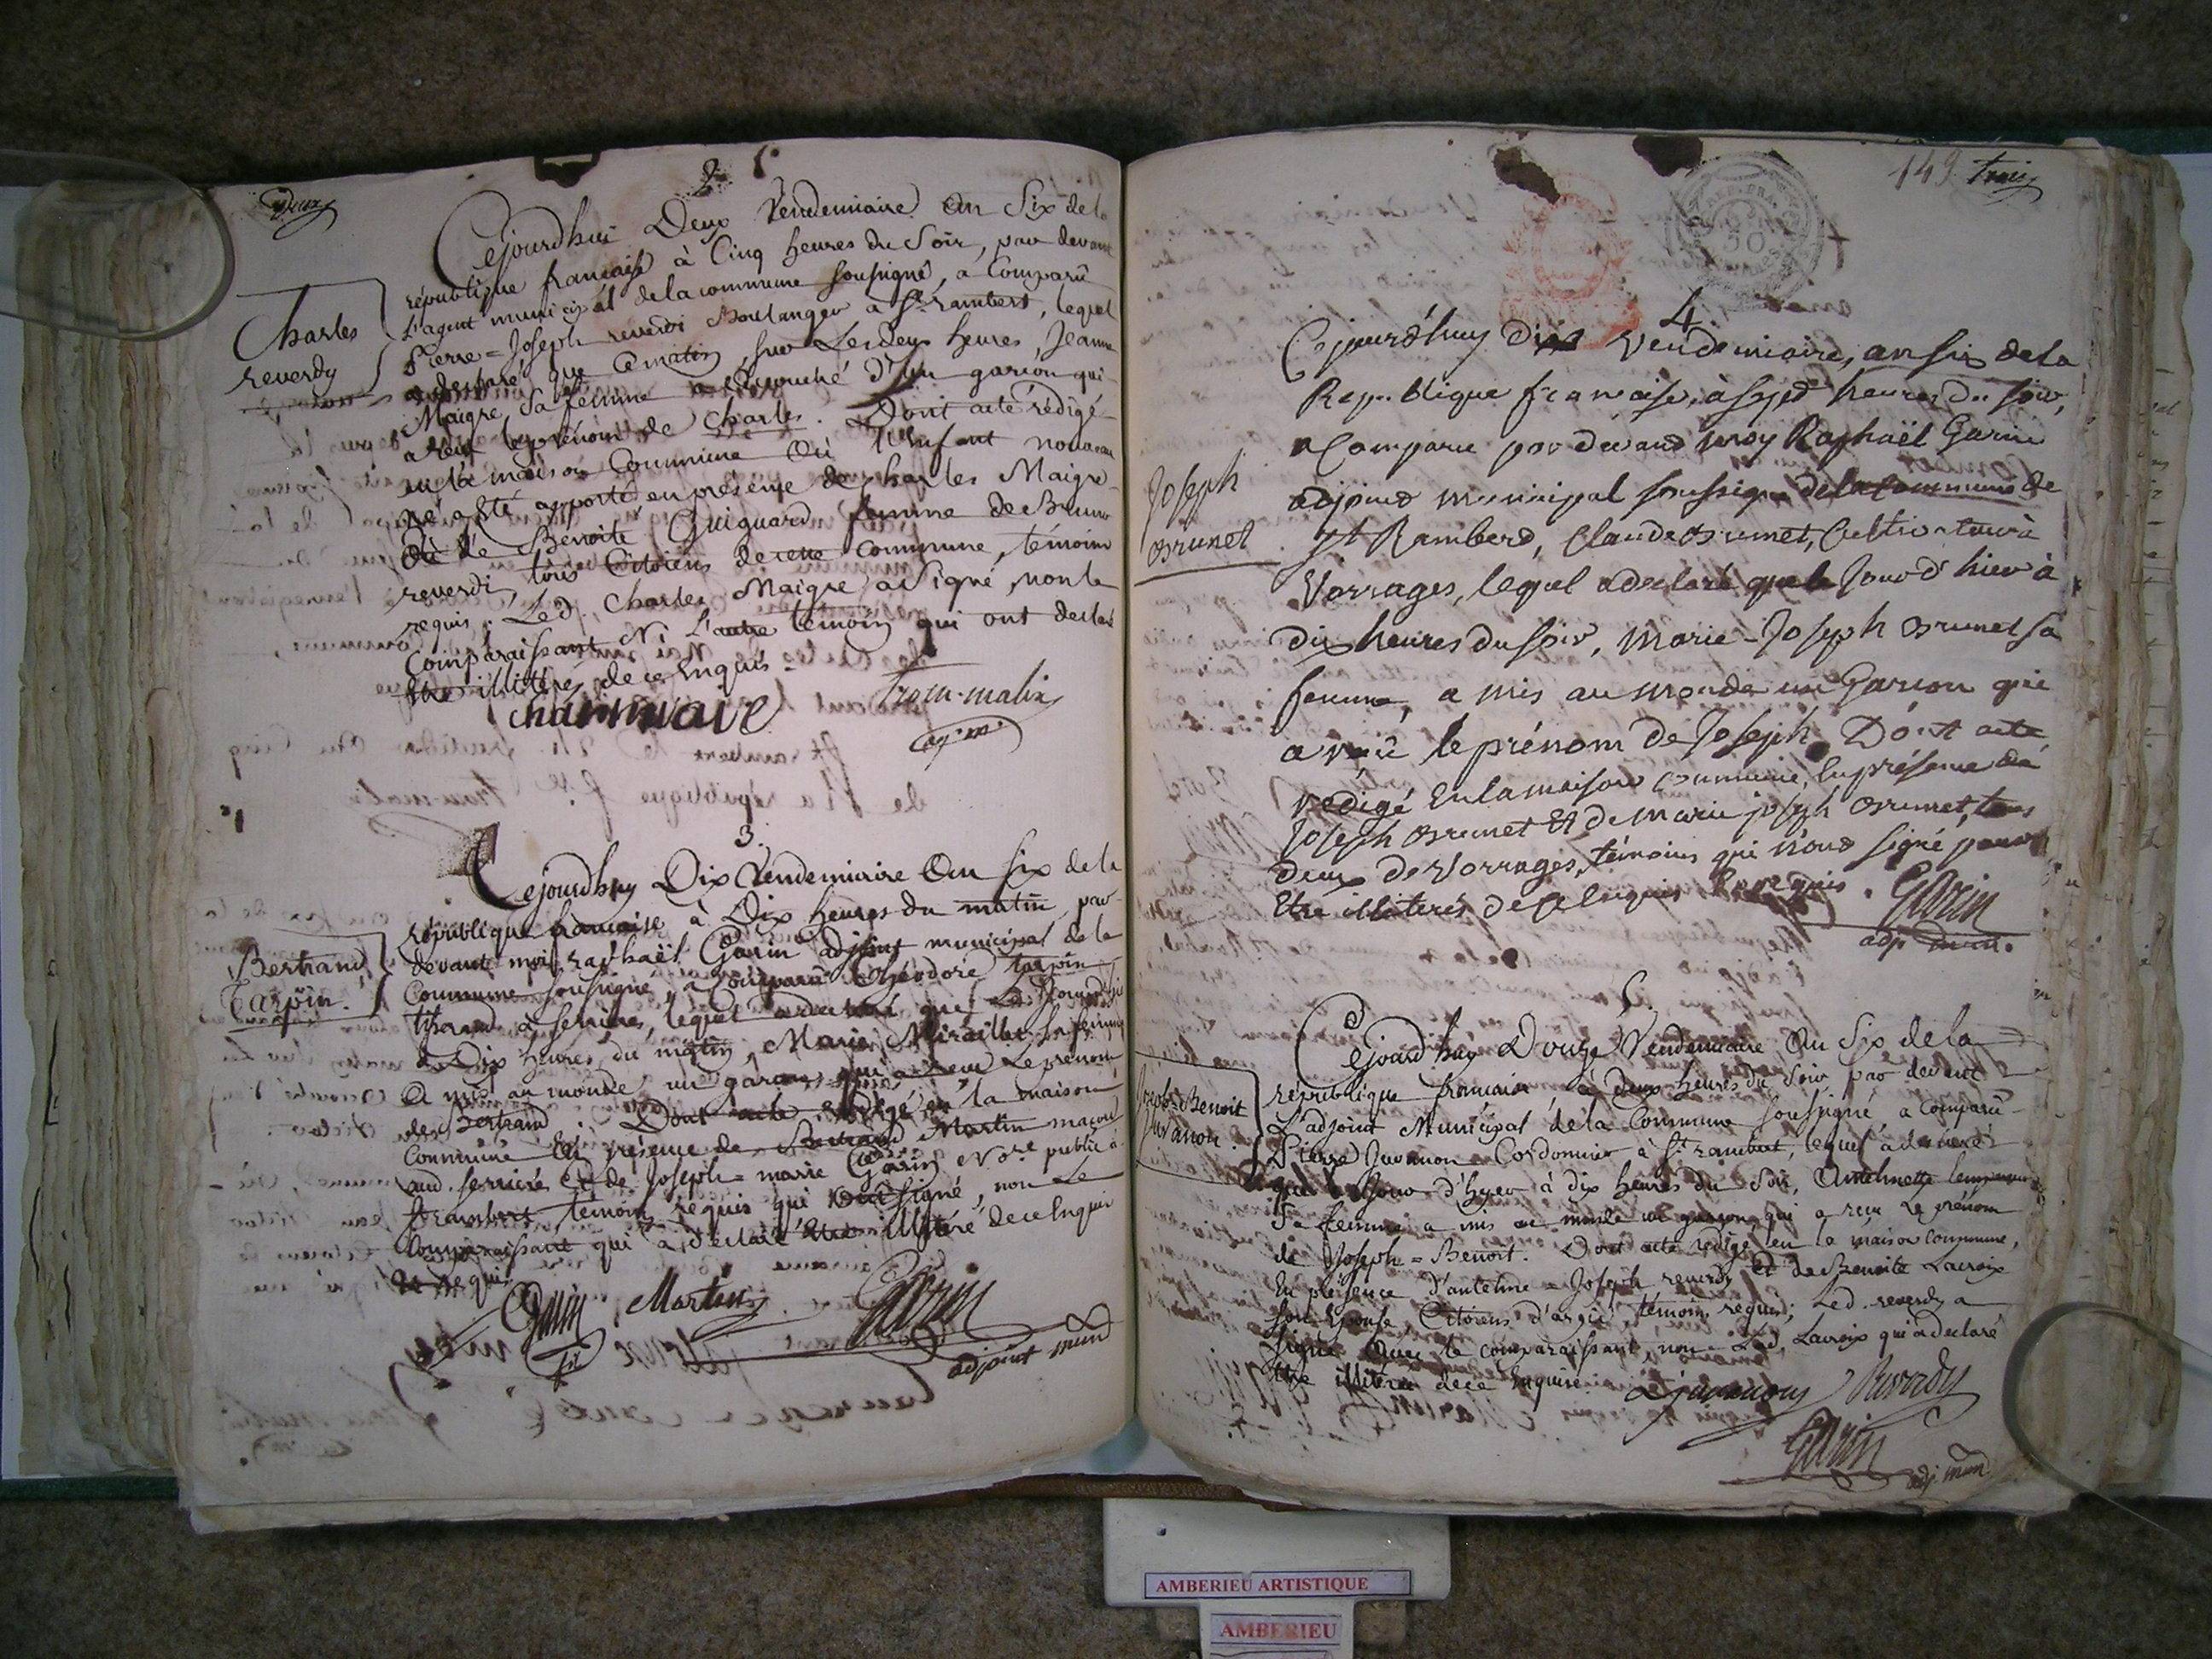 deux
2.
Charles
reverdy
Cejourdhui Deux Vendemiaire an Six de la
république francaise à Cinq heures du Soir, par devant
L'agent municipal de la commune soussigné, a Comparû
Pierre=Joseph reverdi Boulanger a St. rambert, lequel
a declaré que Cematin, sur Les deux heures, Jeanne
Maigre, Sa femme a accouché d'un garçon qui
a reçu le prénom de Charles. Dont acte rédigé
en la maison Commune Où l'enfant nouveau
né a été apporté, en présence de Charles Maigre
Et de Benoite Guiguard femme de Bruno
reverdi, tous Citoiens de cette commune, témoins
requis. Led. Charles Maigre a Signé, non le
Comparaissant Ni L'autre témoin qui ont declaré
Etre illitérés de ce Enquis.
charle maigre
tram-malix
ag. m.
3.
Bertrand
Tarpin.
Cejourdhuy Dix Vendemiaire an Six de la
république francaise à Dix heures du matin par
devant moi raphaël Garin adjoint municipal de la
Commune soussigné, a Comparû théodore tarpin
tisserand à serrieres, lequel a declaré que Le Jour d'hier
à Dix heures du matin, Marie Miraillet Sa femme
a mis au monde un garçon qui a reçu Le prénom
de Bertrand Dont acte redigé en la maison
Commune En présence de Bertrand Martin maçon
aud. serriere et de Joseph=marie Garin Nore. public à
St. rambert témoins requis qui ont signé, non Le
Comparaissant qui a déclaré Etre illitéré de ce Enquis
Et requis
Garin Martin Garin
adjoint mun
149. trois
4.
Joseph
Brunet
Cejourd'huy dix vendemiaire, an six de la
Republique francaise, à sept heures du soir,
a Comparu par devant moy Raphaël Garin
adjoint municipal soussigné de la commune de
St Rambert, Claude Brunet, Cultivateur à
Vorrages, lequel a declaré que le Jour d'hier à
dix heures du soir, Marie-Joseph Brunet sa
femme, a mis au monde un Garcon qui
a reçû le prénom de Joseph. Dont acte
redigé En la maison commune, En présence de
Joseph Brunet Et de marie joseph Brunet, tous
deux de Vorrages, témoins qui n'ont signé pour
Etre illiterés de ce Enquis Et requis.
Garin
adj. mun.
5.
Joseph=Benoit
Juvanon
Cejourd'huy Douze Vendemiaire an Six de la
république francaise, à deux heures du Soir, par devant
L'adjoint Municipal de la Commune soussigné a Comparû
Pierre Juvanon Cordonnier à St. rambert, lequel a declaré
que le Jour d'hyer à dix heures du Soir, Anthelmette
Sa femme a mis au monde un garçon, qui a reçu le prénom
de Joseph=Benoit. Dont acte redigé en la maison Commune,
En présence d'antelme=Joseph reverdy Et de Benoite Lacroix
Son Epouse, Citoiens d'argis témoins requis; Led. reverdy a
signé avec le comparaissant, non Lad. Lacroix qui a declaré
Etre illitérée de ce Enquise. Juvanon Reverdy
Garin
adj. mun
AMBERIEU ARTISTIQUE
AMBERIEU